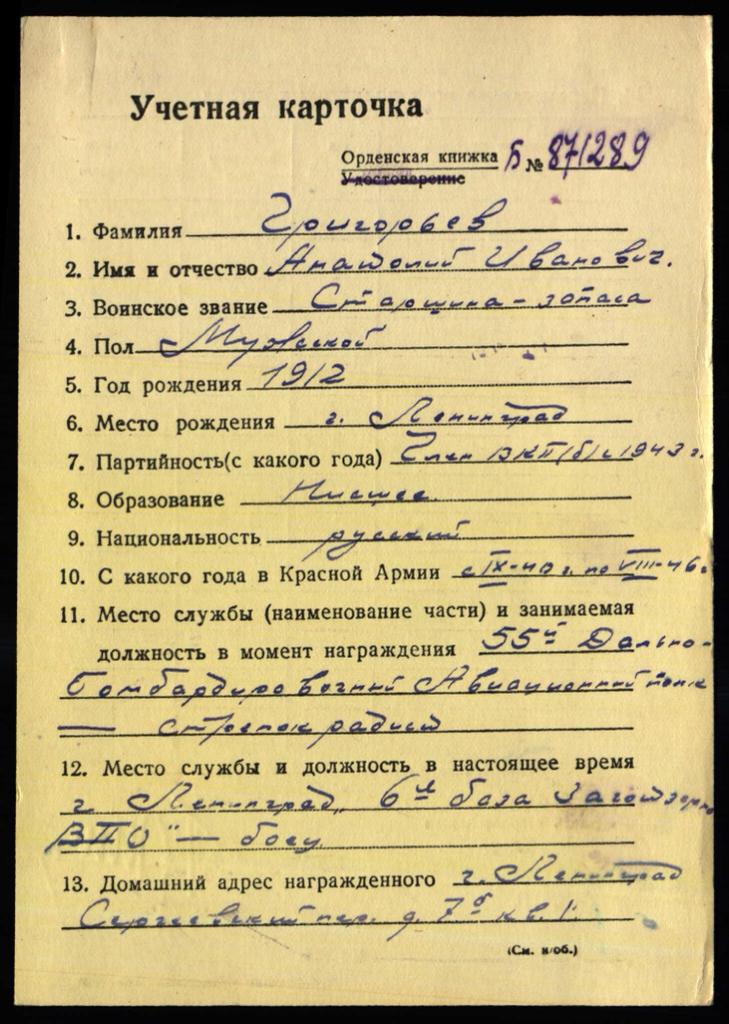 Учетная карточка
Орденская книжка Б № 871289
Удостоверение
1. Фамилия Григорьев
2. Имя и отчество Анатолий Иванович.
3. Воинское звание Старшина-запаса
4. Пол Мужской
5. Год рождения 1912
6. Место рождения г. Ленинград
7. Партийность(с какого года) Член ВКП(б) с 1943 г.
8. Образование Низшее.
9. Национальность русский
10. С какого года в Красной Армии с IX-40 г. по VIII-46г
11. Место службы (наименование части) и занимаемая
должность в момент награждения 55й Дально-
Бомбардировочный Авиационный полк
— стрелок радист
12. Место службы и должность в настоящее время
г Ленинград, 6я база
ВПО" —
13. Домашний адрес награжденного г. Ленинград
Сергиевский пер. д. 7б кв. 1.
(См. н/об.)